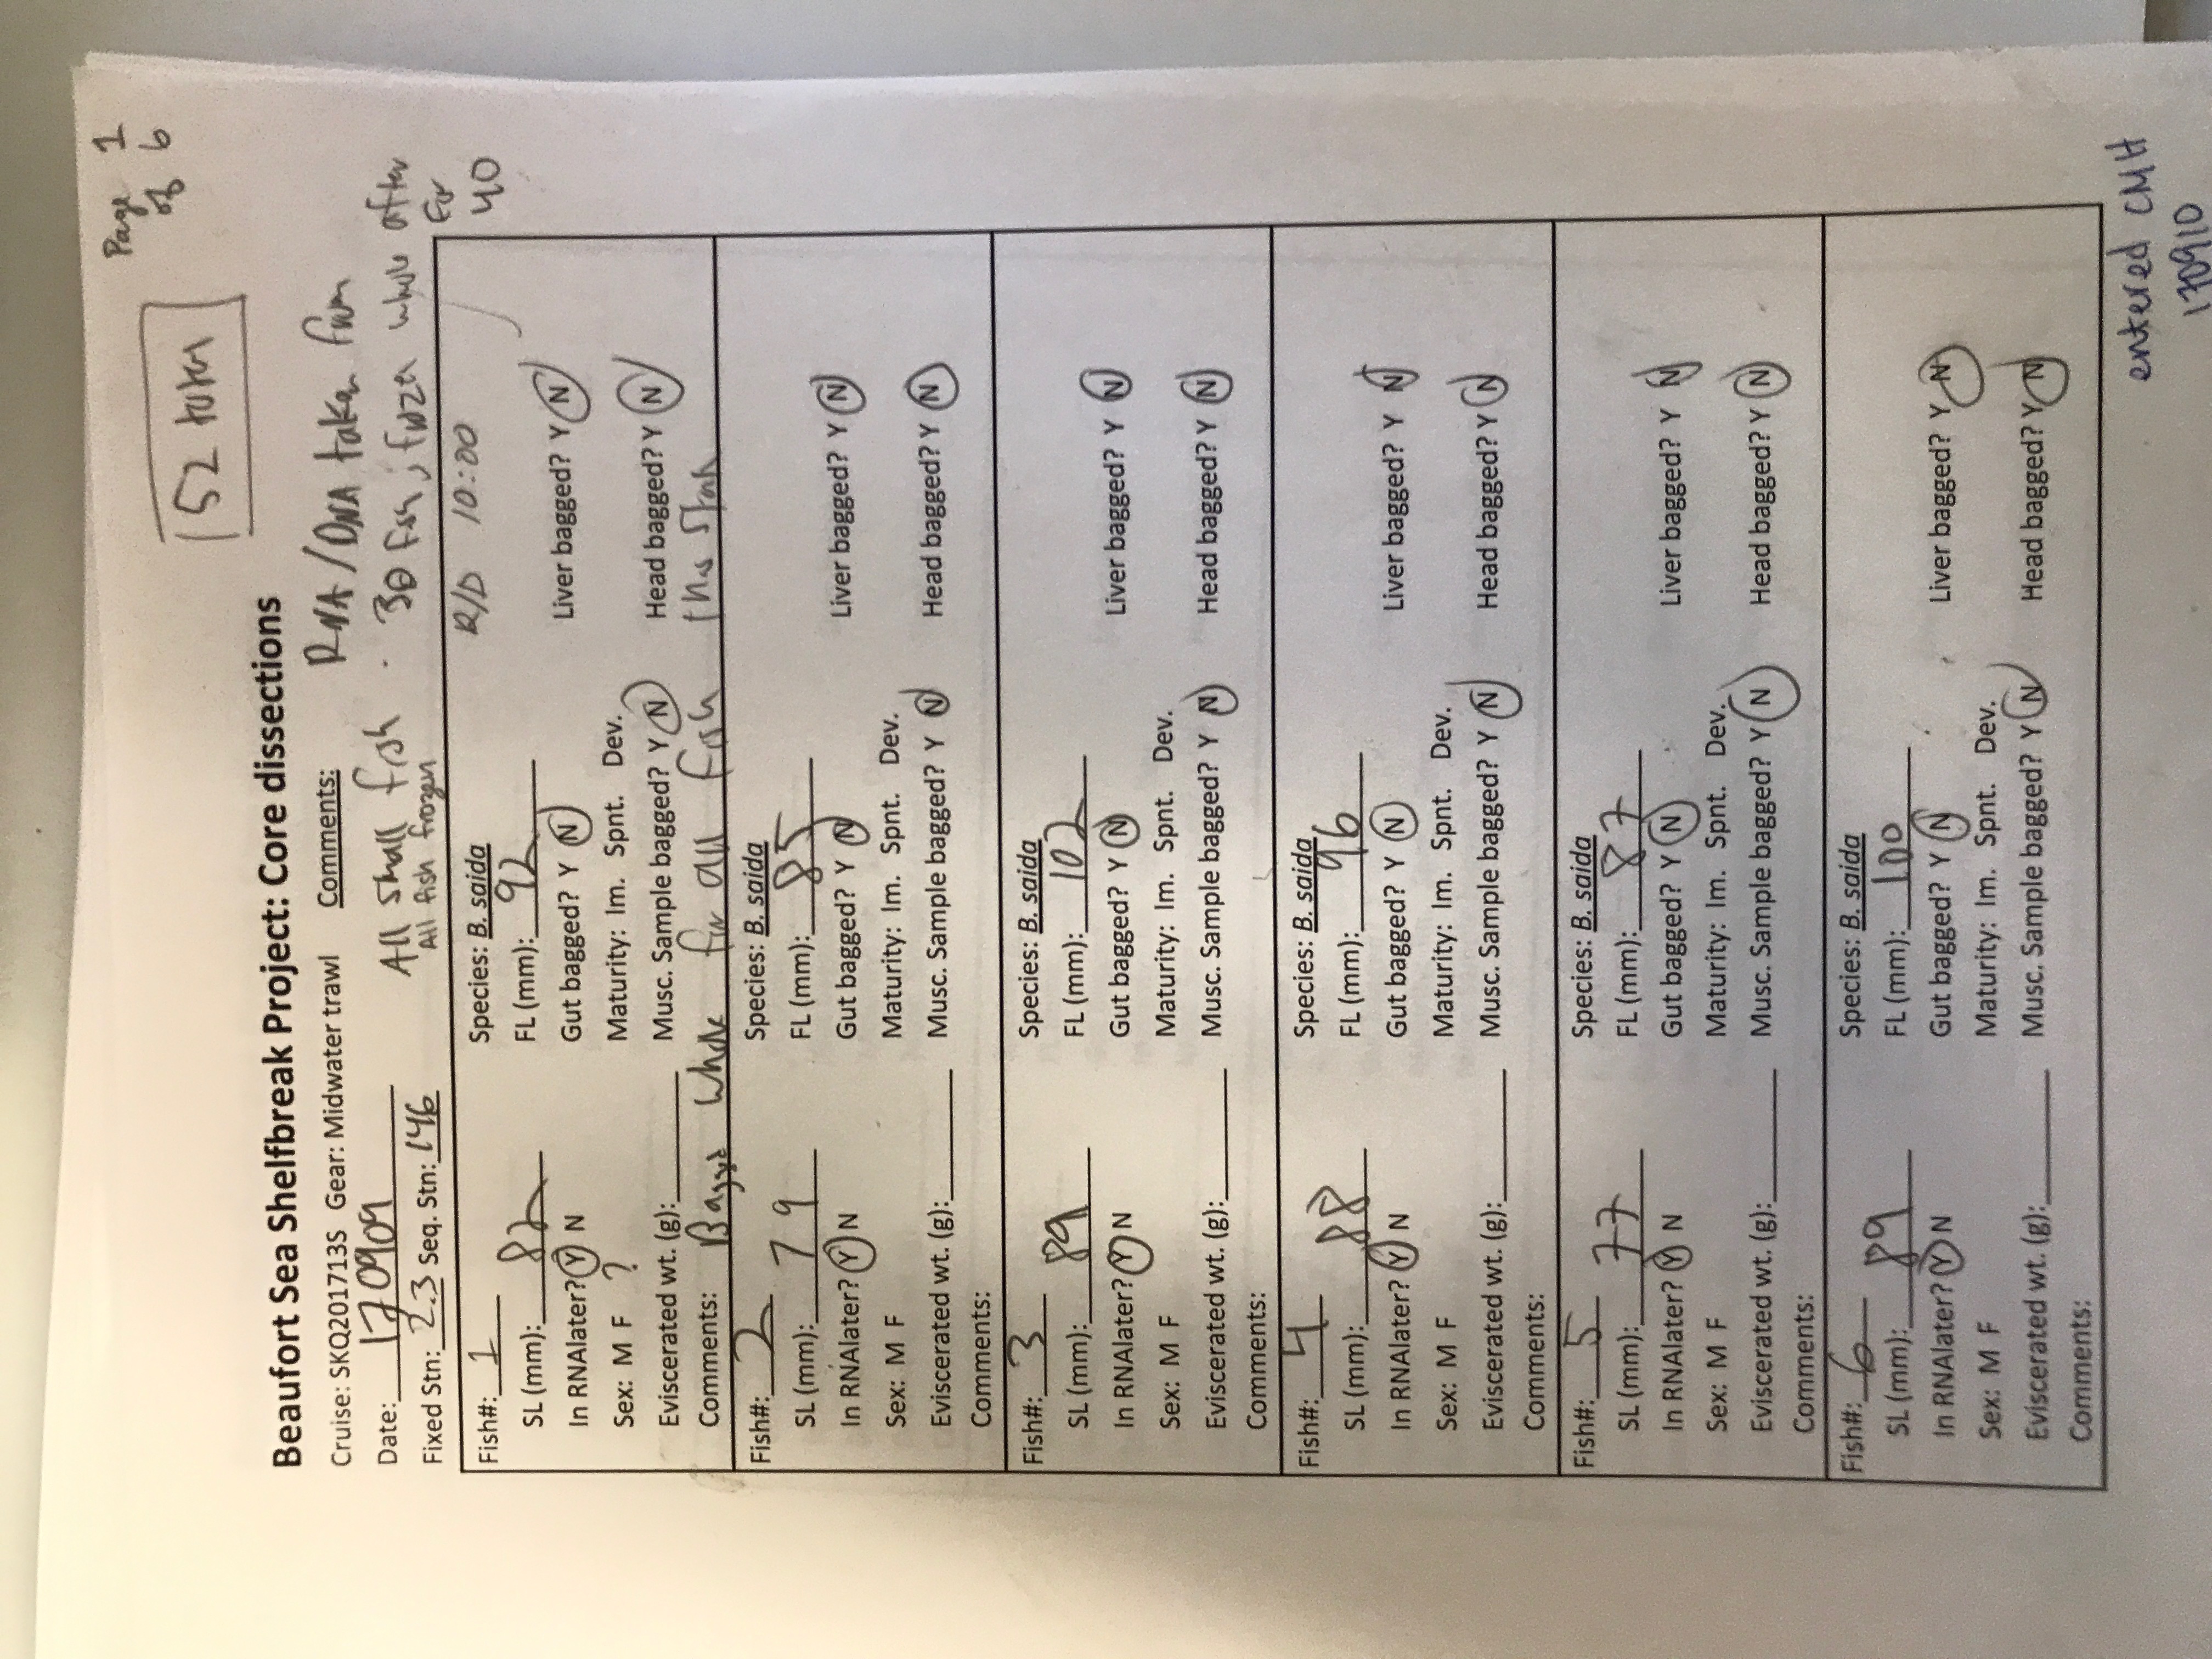 Page 1
of 6
152 total
Beaufort Sea Shelfbreak Project: Core dissections
Cruise: SKQ201713S Gear: Midwater trawl Comments: RNA/DNA taken from
Date: 170909 All small fish . 30 fish, frozen whole after
Fixed Stn: 2.3 Seq. Stn: 146 All fish frozen
R/D 10:00 For 40
Fish#: 1 Species: B. saida
SL (mm): 82 FL (mm): 92 Liver bagged? Y N
In RNAlater? Y N Gut bagged? Y N
Sex: M F ? Maturity: Im. Spnt. Dev.
Eviscerated wt. (g): Musc. Sample bagged? Y N Head bagged? Y N
Comments: Bagged whole for all fish this
Fish#: 2 Species: B. saida
SL (mm): 79 FL (mm): 85
In RNAlater? Y N Gut bagged? Y N Liver bagged? Y N
Sex: M F Maturity: Im. Spnt. Dev.
Eviscerated wt. (g): Musc. Sample bagged? Y N Head bagged? Y N
Comments:
Fish#: 3 Species: B. saida
SL (mm): 89 FL (mm): 102
In RNAlater? Y N Gut bagged? Y N Liver bagged? Y N
Sex: M F Maturity: Im. Spnt. Dev.
Eviscerated wt. (g): Musc. Sample bagged? Y N Head bagged? Y N
Comments:
Fish#: 4 Species: B. saida
SL (mm): 88 FL (mm): 96
In RNAlater? Y N Gut bagged? Y N Liver bagged? Y N
Sex: M F Maturity: Im. Spnt. Dev.
Eviscerated wt. (g): Musc. Sample bagged? Y N Head bagged? Y N
Comments:
Fish#: 5 Species: B. saida
SL (mm): 77 FL (mm): 87
In RNAlater? Y N Gut bagged? Y N Liver bagged? Y N
Sex: M F Maturity: Im. Spnt. Dev.
Eviscerated wt. (g): Musc. Sample bagged? Y N Head bagged? Y N
Comments:
Fish#: 6 Species: B. saida
SL (mm): 89 FL (mm): 100
In RNAlater? Y N Gut bagged? Y N Liver bagged? Y N
Sex: M F Maturity: Im. Spnt. Dev.
Eviscerated wt. (g): Musc. Sample bagged? Y N Head bagged? Y N
Comments:
entered CMH
170910